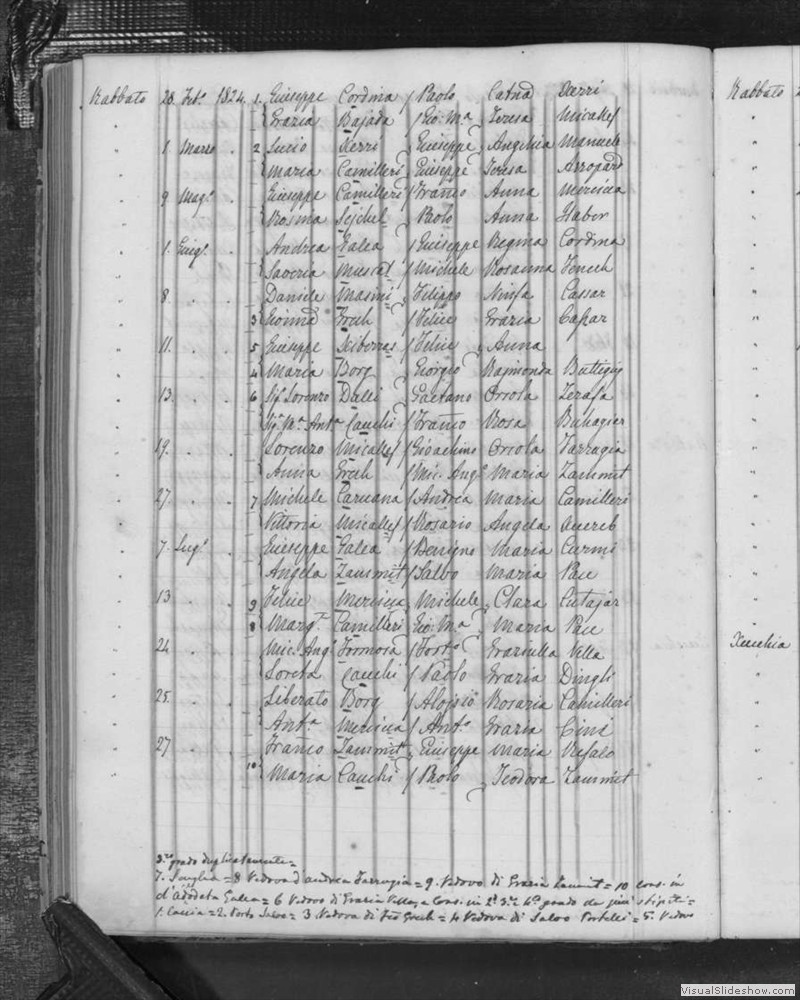 Rabbato 28. Feb.º 1824. 1. Giuseppe Cordina / Paolo Catnd Darri
Grazia Bajada / Gio: Mª Teresa Micallef
1. Marzo 2 Lucio Xerri Giuseppe Angelica Manuele
Maria Camilleri Giuseppe Teresa
9 Mag.º Giuseppe Camilleri / Franco Anna Mercieca
Rosina Sejchel Paolo Anna Haber
1. Giug.º Andrea Galea / Giuseppe Regina Cordina
Saveria Muscat / Michele Rosanna Fenech
8. Daniele Masini Filippo Ninfa Cassar
3 Grech / Felice Grazia Caffar
11. 5 Giuseppe Xiberras / Felice Anna
4 Maria Borg Giorgio Raimonda Buttigieg
13. 6 Sig. Lorenzo Dalli Gaetano Orsola Zerafa
Antª Cauchi / Franco Rosa Buhagiar
19. Lorenzo Micallef / Gioachino Orsola Farrugia
Anna Grech / Mic. Ang.º Maria Zammit
27 7 Michele Caruana / Andrea Maria Camilleri
Vittoria Micallef / Rosario Angela
7. Lug.º Giuseppe Galea / Benigno Maria Curmi
Angela Zammit / Salvo Maria Pace
13 9 Felice Mercieca Michele Clara Cutajar
8 Marg.ª Camilleri Gio: Mª Maria Pace
24 Mic. Ang.º Formosa / Fort.º Graziulla Vella
Loreta Cauchi / Paolo Grazia Dingli
25. Liberato Borg / Aloisio Rosaria Camilleri
Ant.ª Mercieca / Ant.º Grazia Cini
27 Franco Zammit Giuseppe Maria Refalo
10 Maria Cauchi / Paolo Teodora Zammit
3.º grado duplicatamente =
7. = 8 Vedova d'Andrea Farrugia = 9. Vedovo di Grazia Zammit = 10 Cons. in
Galea = 6 Vedovo di Grazia Vella, e Cons. in 2º 3.º e 4º grado
1. Caccia = 2. Porto Salvo = 3 Vedova di Grech = 4 Vedova di Salvo Portelli = 5. Vedovo
Rabbato
Xeuchia
VisualSlideshow.com